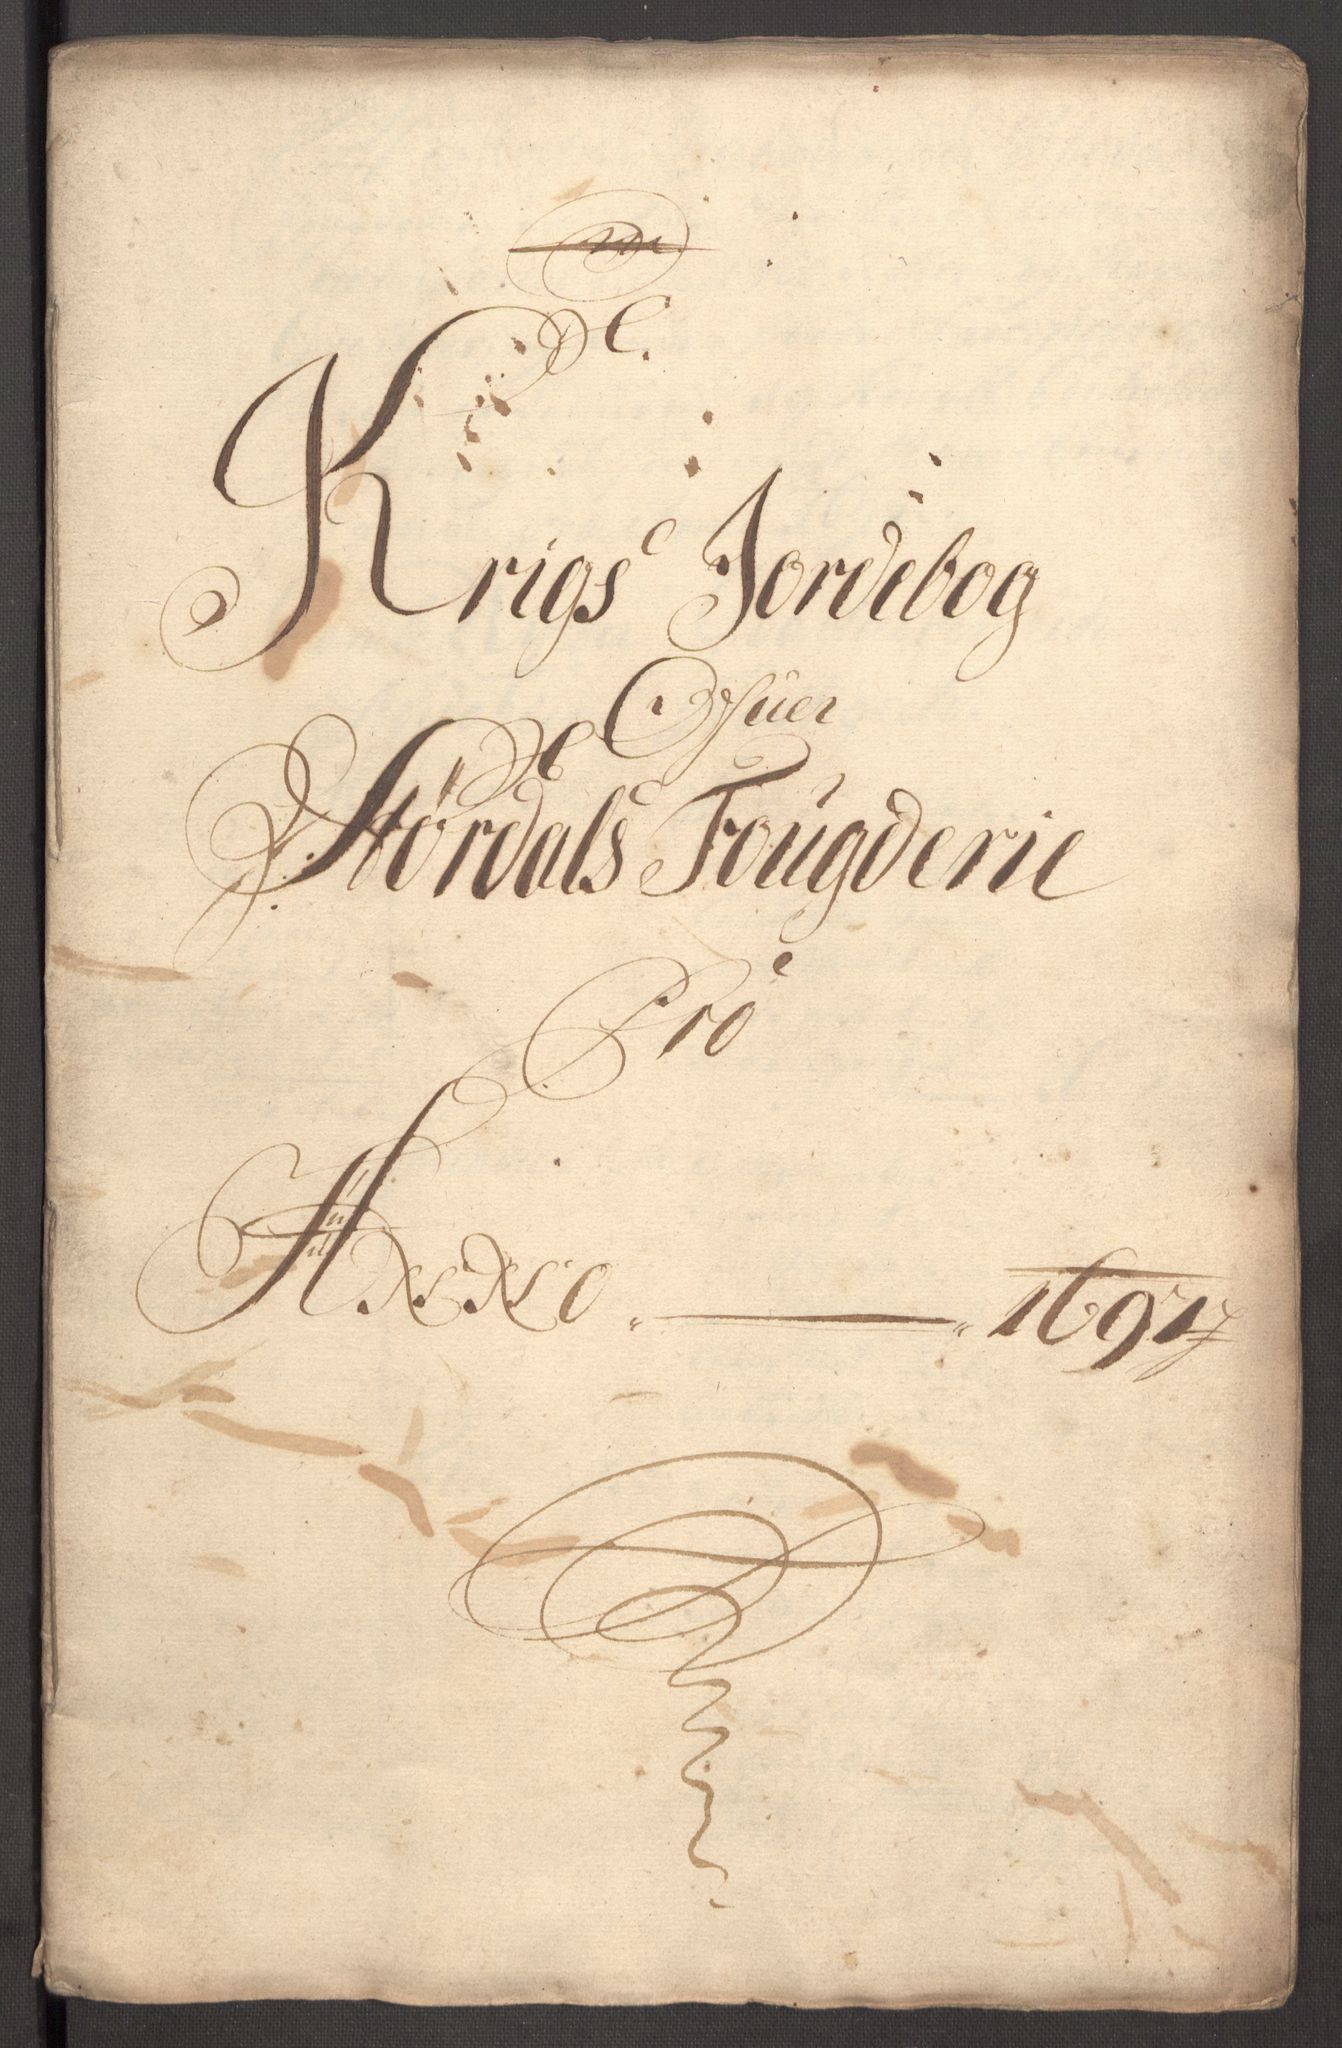 Krigs Jordebog
Ofuer
Størdals Fougderie
Pro
Anno 1697